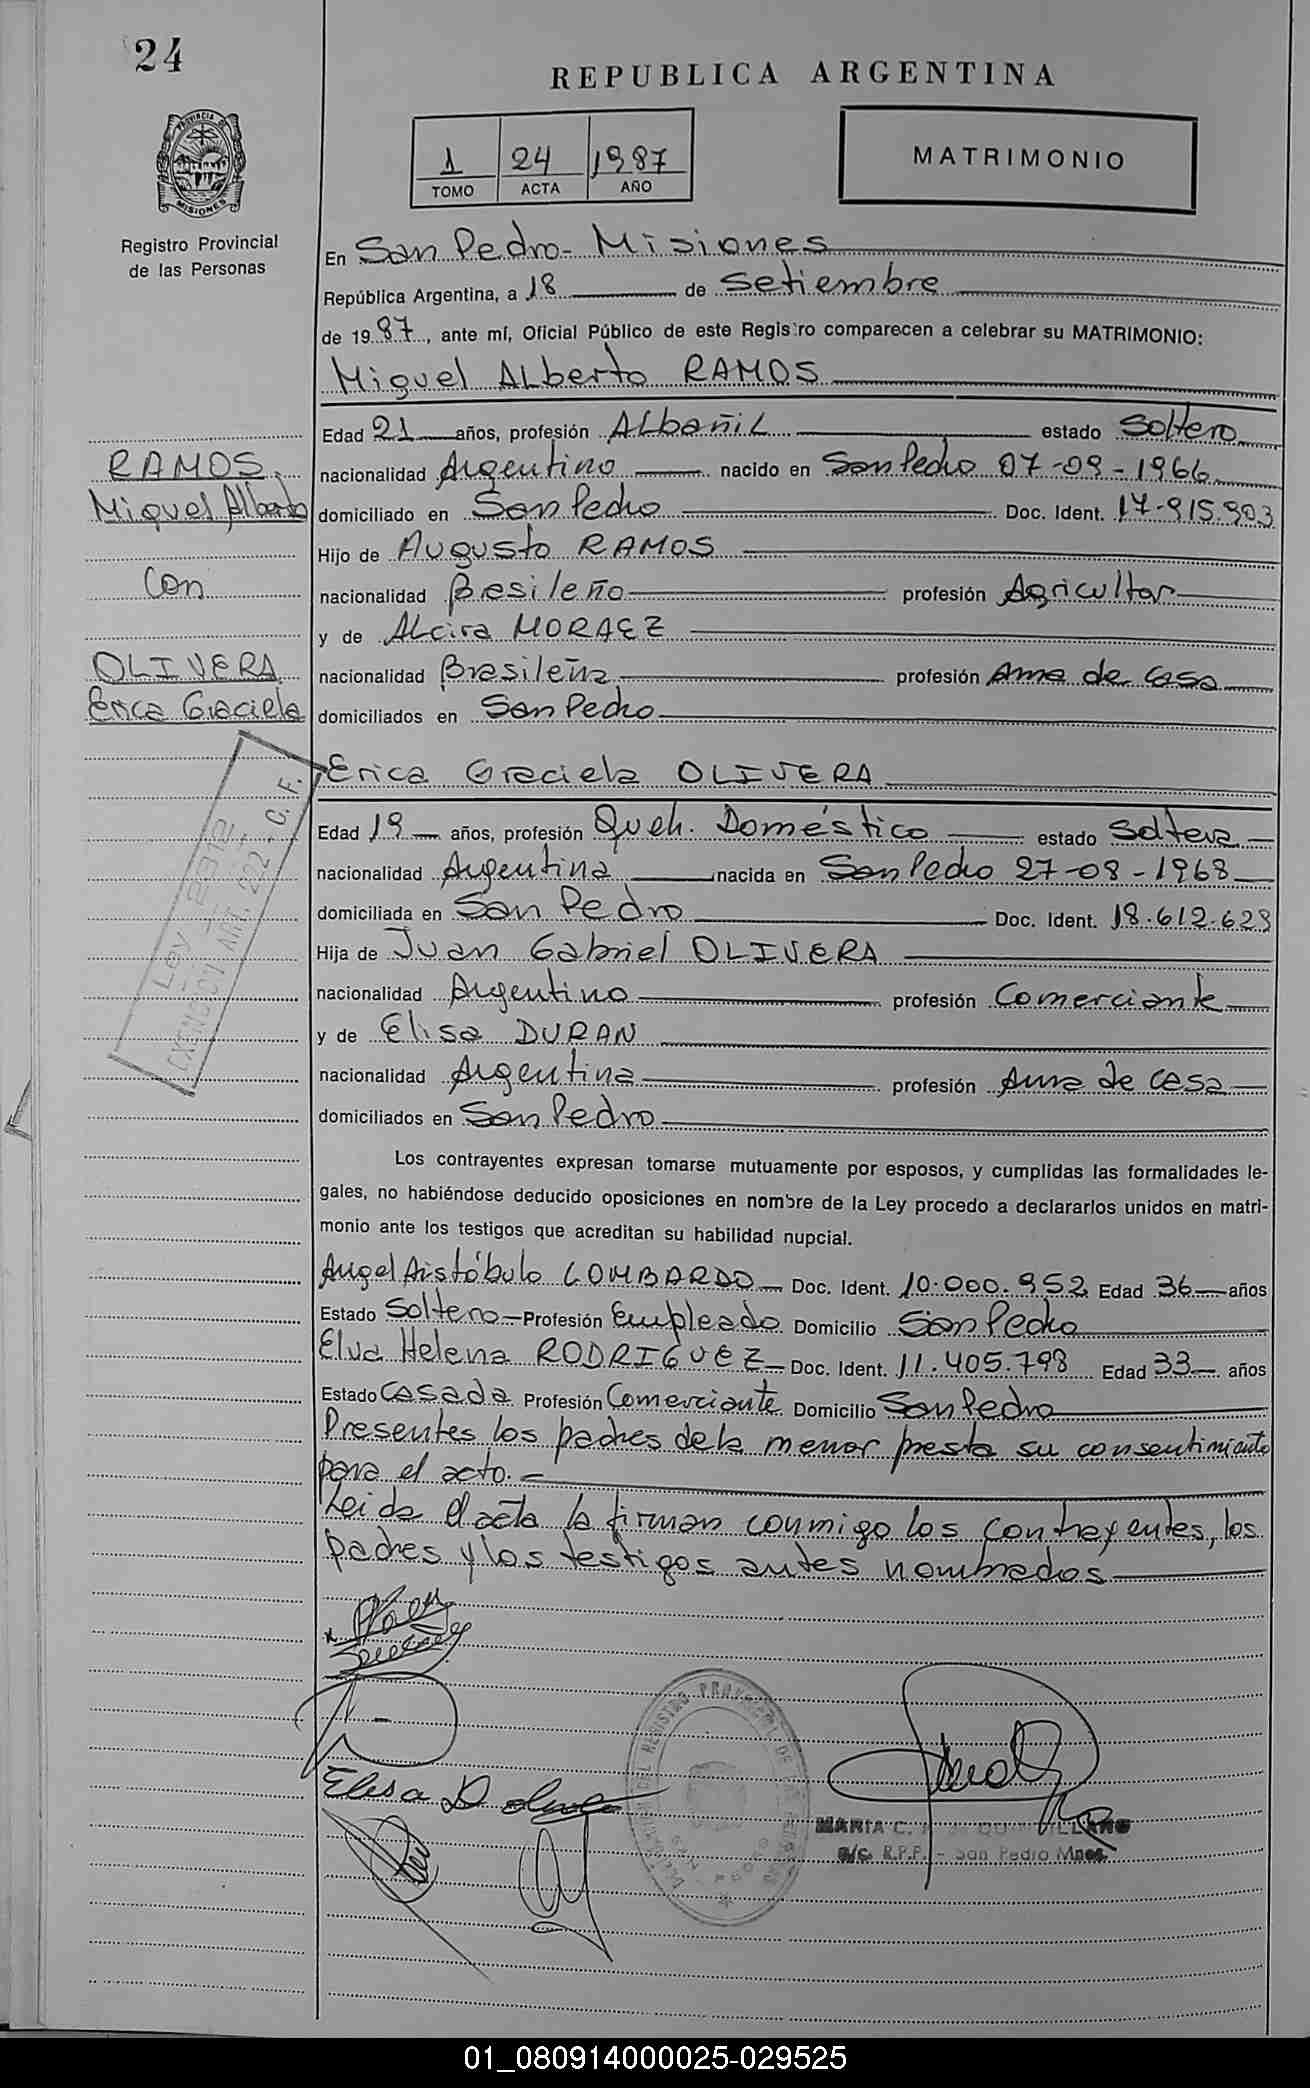 24
REPUBLICA ARGENTINA
PROVINCIA DE
MISIONES
Registro Provincial
de las Personas
1 24 1987
TOMO ACTA AÑO
MATRIMONIO
En San Pedro - Misiones
República Argentina, a 18 de Setiembre
de 1987, ante mí, Oficial Público de este Registro comparecen a celebrar su MATRIMONIO:
Miguel Alberto RAMOS
Edad 21 años, profesión Albañil estado Soltero
RAMOS,
Miguel Alberto
con
OLIVERA
Erica Graciela
nacionalidad Argentino nacido en San Pedro 07-09-1966
domiciliado en San Pedro Doc. Ident. 17-915.903
Hijo de Augusto RAMOS
nacionalidad Brasileño profesión Agricultor
y de Alcira MORAEZ
nacionalidad Brasileña profesión Ama de casa
domiciliados en San Pedro
Erica Graciela OLIVERA
Edad 19 años, profesión Queh. Doméstico estado Soltera
nacionalidad Argentina nacida en San Pedro 27-08-1968
domiciliada en San Pedro Doc. Ident. 18.612.628
Hija de Juan Gabriel OLIVERA
nacionalidad Argentino profesión Comerciante
y de Elisa DURAN
nacionalidad Argentina profesión Ama de casa
domiciliados en San Pedro
Ley 2912
EXENCION ART. 222 - C. F.
Los contrayentes expresan tomarse mutuamente por esposos, y cumplidas las formalidades le-
gales, no habiéndose deducido oposiciones en nombre de la Ley procedo a declararlos unidos en matri-
monio ante los testigos que acreditan su habilidad nupcial.
Angel Aristóbulo LOMBARDO Doc. Ident. 10.000.952 Edad 36 años
Estado Soltero Profesión Empleado Domicilio San Pedro
Elva Helena RODRIGUEZ Doc. Ident. 11.405.798 Edad 33 años
Estado Casada Profesión Comerciante Domicilio San Pedro
Presentes los padres de la menor presta su consentimiento
para el acto.-
Leida el acta la firman conmigo los contrayentes, los
padres y los testigos antes nombrados
Elisa D
REGISTRO PROVINCIAL DE LAS PERSONAS
SAN PEDRO
MARIA C.
a/c. R.P.P. - San Pedro Mnes.
01_080914000025-029525